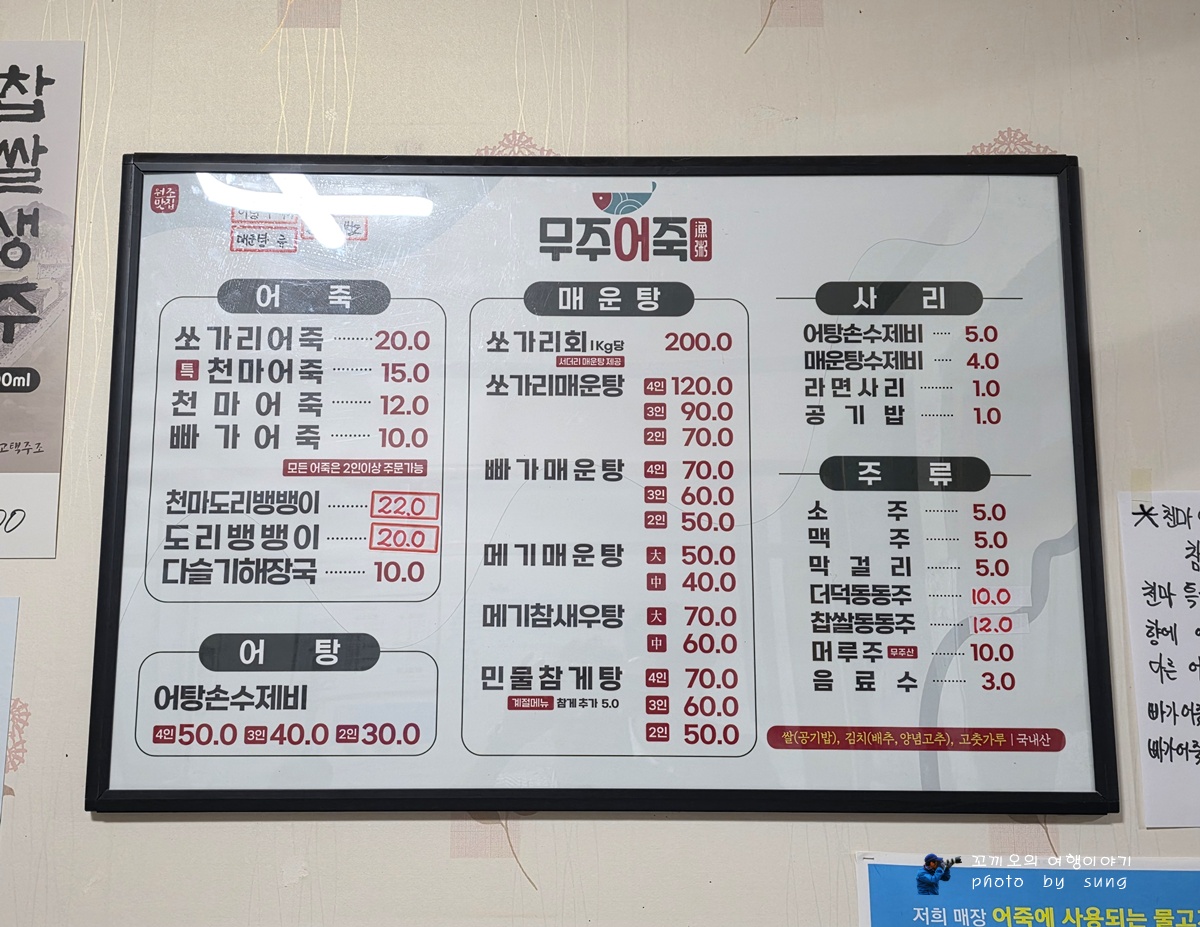 찹쌀생주
고택주조
원조
맛집
무주어죽
漁粥
어 죽
쏘가리어죽 ········ 20.0
특 천마어죽 ········ 15.0
천마어죽 ········ 12.0
빠가어죽 ········ 10.0
모든 어죽은 2인이상 주문가능
천마도리뱅뱅이 ········ 22.0
도리뱅뱅이 ········ 20.0
다슬기해장국 ········ 10.0
어 탕
어탕손수제비
4인 50.0 3인 40.0 2인 30.0
매운탕
쏘가리회 1Kg당 200.0
서더리 매운탕 제공
쏘가리매운탕 4인 120.0
3인 90.0
2인 70.0
빠가매운탕 4인 70.0
3인 60.0
2인 50.0
메기매운탕 大 50.0
中 40.0
메기참새우탕 大 70.0
中 60.0
민물참게탕 4인 70.0
계절메뉴 참게 추가 5.0 3인 60.0
2인 50.0
사 리
어탕손수제비 ····· 5.0
매운탕수제비 ····· 4.0
라면사리 ······ 1.0
공기밥 ······ 1.0
주 류
소 주 ········ 5.0
맥 주 ········ 5.0
막걸리 ········ 5.0
더덕동동주 ········ 10.0
찹쌀동동주 ········ 12.0
머루주 무주산 ········ 10.0
음료수 ········ 3.0
쌀(공기밥), 김치(배추,양념고추), 고춧가루 | 국내산
천마
천마
향에
다른
빠가어죽
빠가어죽
꼬끼오의 여행이야기
photo by sung
저희 매장 어죽에 사용되는 물고